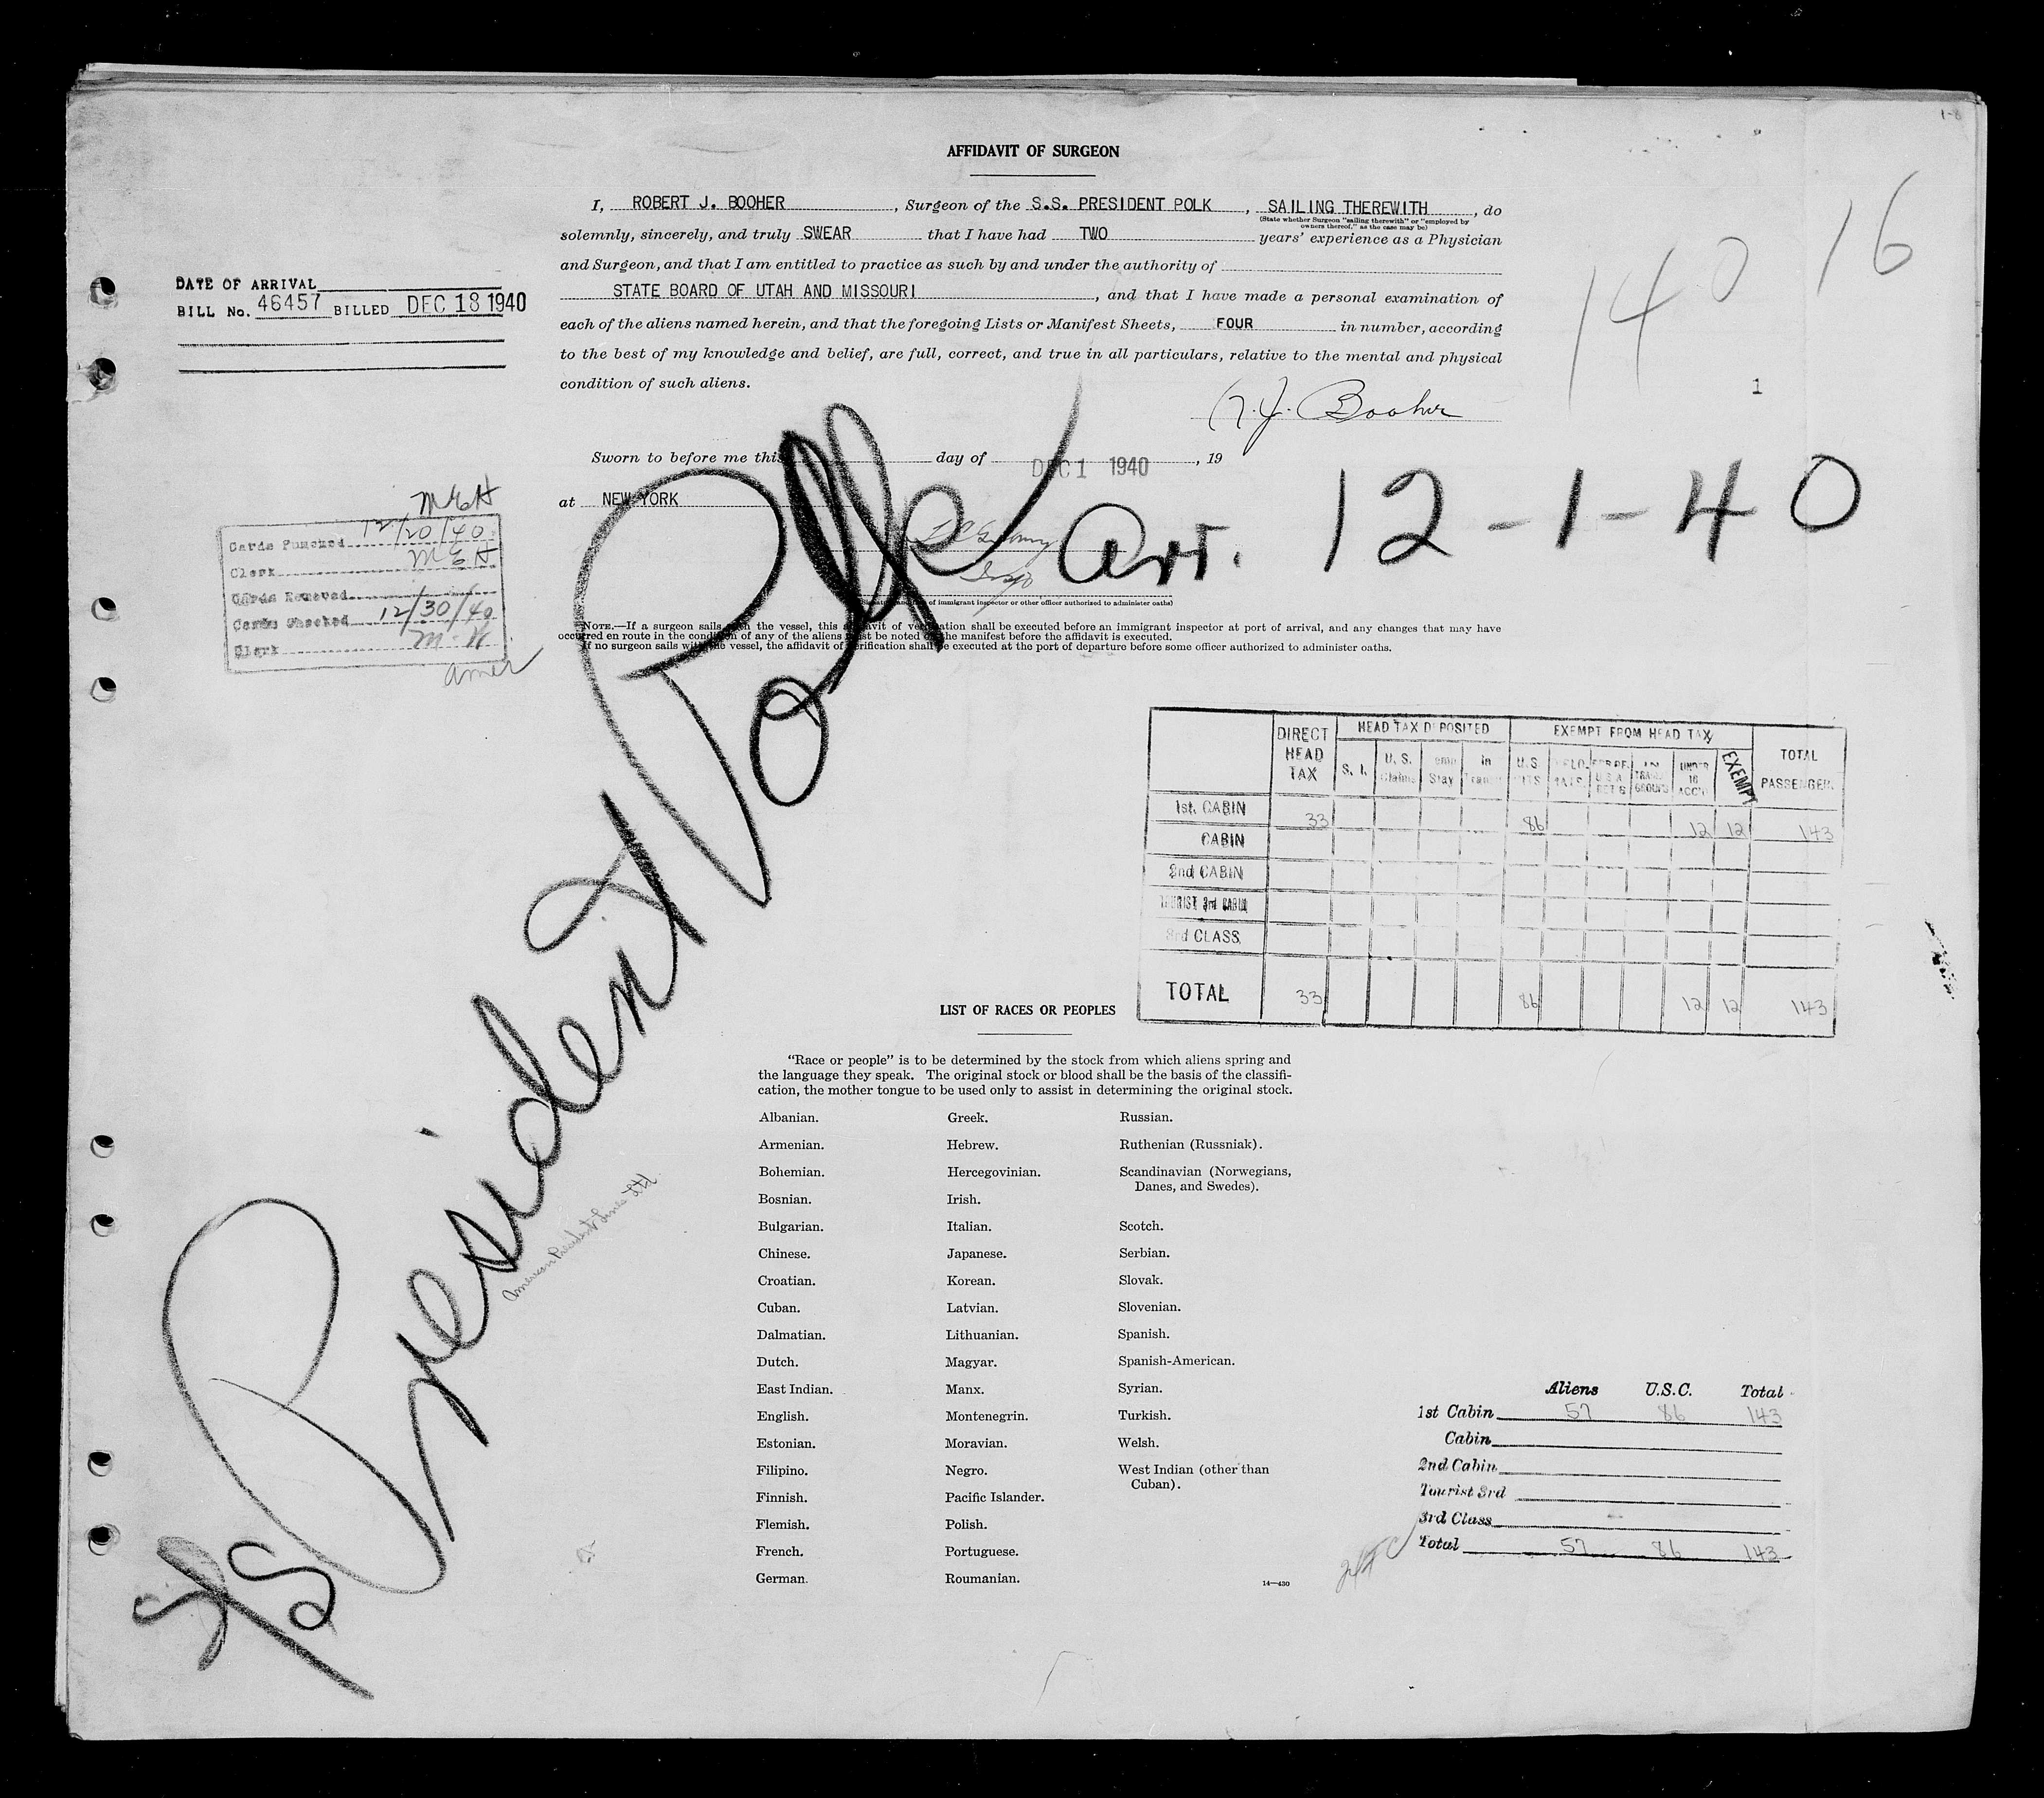 1-8
AFFIDAVIT OF SURGEON
I, ROBERT J. BOOHER, Surgeon of the S.S. PRESIDENT POLK, SAILING THEREWITH, do
(State whether Surgeon "sailing therewith" or "employed by
owners thereof," as the case may be)
solemnly, sincerely, and truly SWEAR that I have had TWO years' experience as a Physician
and Surgeon, and that I am entitled to practice as such by and under the authority of
STATE BOARD OF UTAH AND MISSOURI, and that I have made a personal examination of
each of the aliens named herein, and that the foregoing Lists or Manifest Sheets, FOUR in number, according
to the best of my knowledge and belief, are full, correct, and true in all particulars, relative to the mental and physical
condition of such aliens.
R. J. Booher
Sworn to before me this day of DEC 1 1940, 19
at NEW YORK
Insp
of immigrant inspector or other officer authorized to administer oaths)
NOTE.—If a surgeon sails with the vessel, this affidavit of verification shall be executed before an immigrant inspector at port of arrival, and any changes that may have
occurred en route in the condition of any of the aliens must be noted on the manifest before the affidavit is executed.
If no surgeon sails with the vessel, the affidavit of verification shall be executed at the port of departure before some officer authorized to administer oaths.
DATE OF ARRIVAL
BILL No. 46457 BILLED DEC 18 1940
140 16
1
S/S President Polk Arr. 12-1-40
American President Lines Ltd
MEH
Cards Punched 12/20/40
Clerk MEH
Cards Removed
Cards Checked 12/30/40
Clerk M-H
amer
DIRECT HEAD TAX
HEAD TAX DEPOSITED
EXEMPT FROM HEAD TAX
TOTAL PASSENGER
S. I. U. S. Claims Temp Stay In Transit U.S. CITS DIPLO MATS U.S.A. IN TRANS GROUND UNDER 16 ACC'D EXEMPT
1st. CABIN 33 86 12 12 143
CABIN
2nd CABIN
TOURIST 3rd CABIN
3rd CLASS
TOTAL 33 86 12 12 143
LIST OF RACES OR PEOPLES
"Race or people" is to be determined by the stock from which aliens spring and
the language they speak. The original stock or blood shall be the basis of the classifi-
cation, the mother tongue to be used only to assist in determining the original stock.
Albanian.
Armenian.
Bohemian.
Bosnian.
Bulgarian.
Chinese.
Croatian.
Cuban.
Dalmatian.
Dutch.
East Indian.
English.
Estonian.
Filipino.
Finnish.
Flemish.
French.
German.
Greek.
Hebrew.
Hercegovinian.
Irish.
Italian.
Japanese.
Korean.
Latvian.
Lithuanian.
Magyar.
Manx.
Montenegrin.
Moravian.
Negro.
Pacific Islander.
Polish.
Portuguese.
Roumanian.
Russian.
Ruthenian (Russniak).
Scandinavian (Norwegians,
Danes, and Swedes).
Scotch.
Serbian.
Slovak.
Slovenian.
Spanish.
Spanish-American.
Syrian.
Turkish.
Welsh.
West Indian (other than
Cuban).
14—430
Aliens U.S.C. Total
1st Cabin 57 86 143
Cabin
2nd Cabin
Tourist 3rd
3rd Class
Total 57 86 143